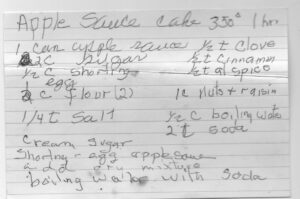 Apple Sauce Cake 350° 1 hr
1 can apple sauce ½ t clove
2 C sugar ½ t cinnamon
½ C shorting ½ t alspice
egg
2 C flour (2) 1 C nuts + raisin
1/4 t salt ½ C boiling water
2 t soda
Cream sugar
Shorting - egg applesauce
add dry mixture
boiling water with soda